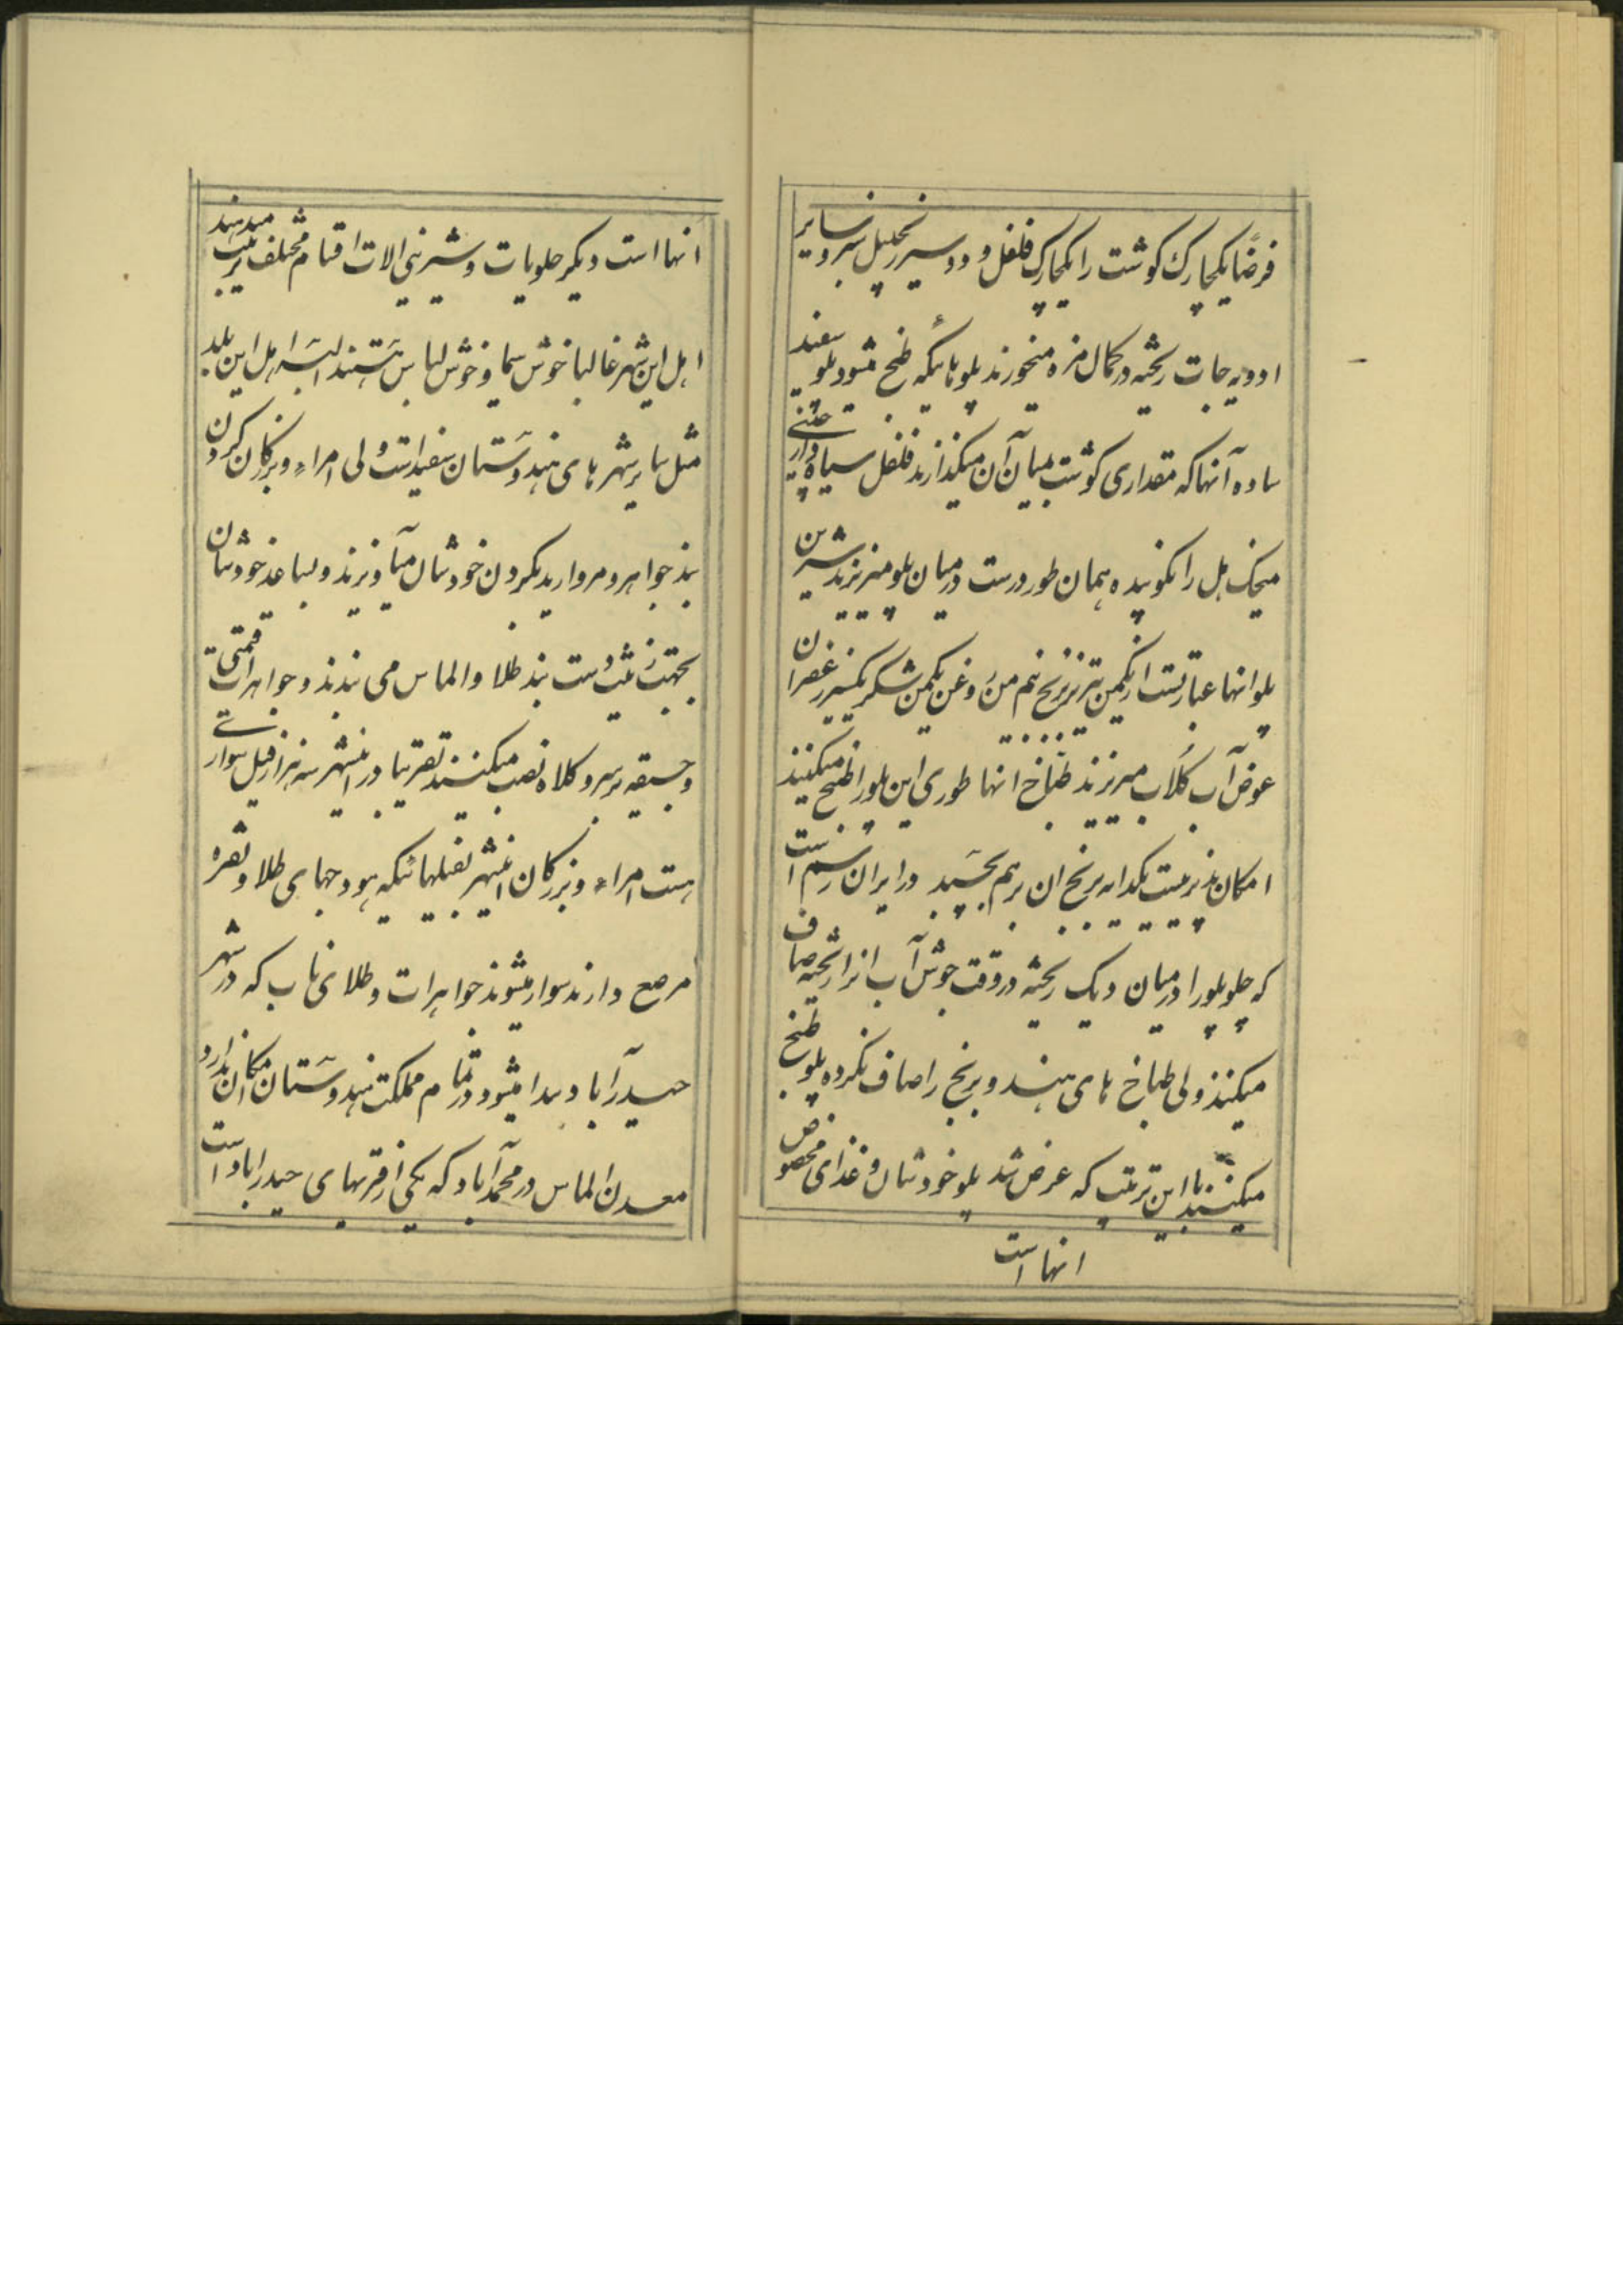 فرضاً یکچارک گوشت را یکچارک فلفل و دو سیر زنجبیل سبز و سایر
ادویه جات ریخته در کمال مزه میخورند پلوهائیکه طبخ میشود پلو سفید
ساده آنها که مقداری گوشت میان آن میگذارند فلفل سیاه دارچینی
میخک هل را نکوبیده همان طور درست در میان پلو میریزند شیرین
پلو انها عبارتست از یکمن تبریز برنج نیم من روغن یکمن شکر یکسیر زعفران
عوض آب گلاب میریزند طباخ انها طوری این پلو را طبخ میکنند
امکان پذیر نیست یکدانه برنج ان برهم بچسبد در ایران رسم است
که چلو پلو را در میان دیک ریخته در وقت جوش آب انرا ریخته صاف
میکنند ولی طباخ های هند و برنج را صاف نکرده پلو طبخ
میکنند با این ترتیب که عرض شد پلو خودشان و غذای مخصوص
انها است
انها است دیگر حلویات و شیرینی الات اقسام مختلف ترتیب میدهند
اهل این شهر غالبا خوش سیما و خوش لباس هستند البسه اهل این بلد
مثل سایر شهر های هندوستان سفید است ولی امراء و بزرگان گردن
بند جواهر و مروارید بگردن خودشان میآویزند و بساعد خودشان
بجهت زینت دست بند طلا و الماس می بندند و جواهرات قیمتی
و جیقه بر سر و کلاه نصب میکنند تقریبا در اینشهر سه هزار فیل سواری
هست امراء و بزرگان اینشهر بفیلهائیکه هودجهای طلا و نقره
مرصع دارند سوار میشوند جواهرات و طلای ناب که در شهر
حیدرآباد پیدا میشود در تمام مملکت هندوستان امکان ندارد
معدن الماس در محمدآباد که یکی از قریهای حیدراباد است